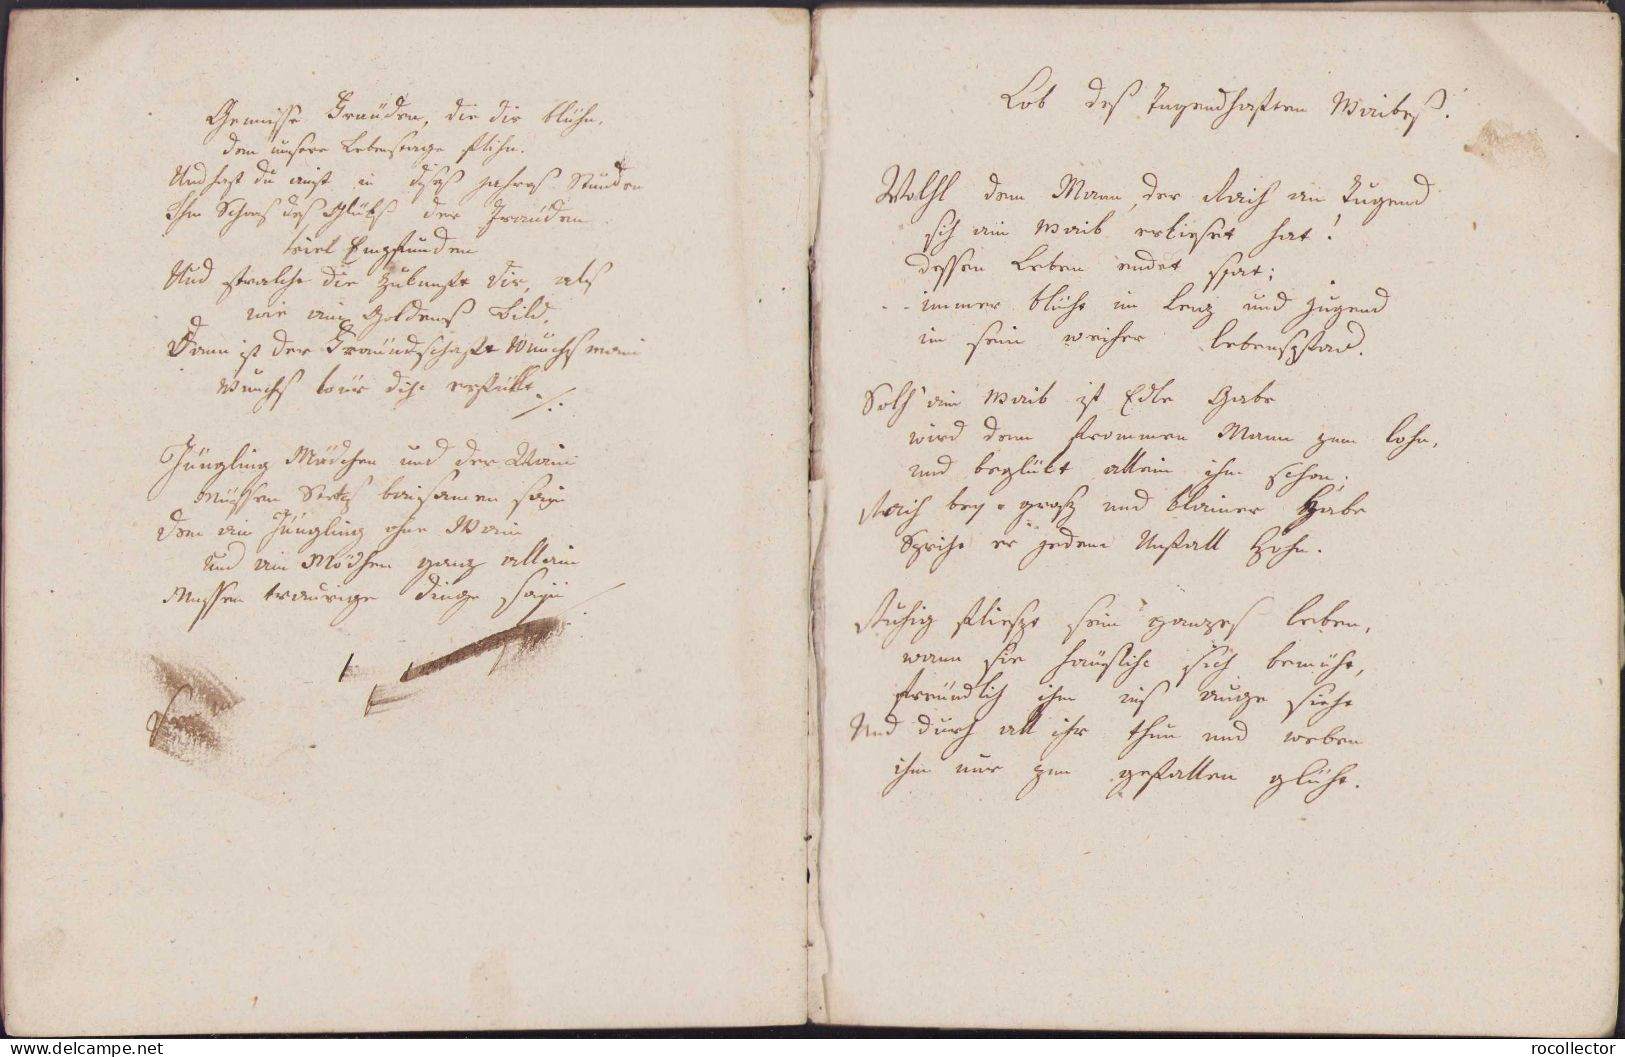 Geniesse Freüden, die dir blühn,
dem unsere Lebenstage flihn.
Und hast du einst in dises Jahres Stunden
Im Schoos des Glüks der Freüden
viel Empfunden
Und strahle die Zukunft dir, als
wie ein Goldenes Bild,
Dann ist der Freündschaft Wunsch mein
Wunsch für dich erfüllt
Jüngling Mädchen und der Wein
Müssen Stets beisamen sein
Den ein Jüngling ohne Wein
und ein Mädchen ganz allein
Müssen traurige Dinge sein
Lob des Tugendhaften Weibes.
Wohl dem Mann, der Reich an Tugend
sich ein Weib erkieset hat!
dessen Leben endet spat;
immer blüht im Lenz und Jugend
in sein weicher Lebenspfad.
Solch ein Weib ist Edle Gabe
wird dem frommen Mann zum lohn,
und beglükt allein ihn schon;
Reich bey gross und kleiner Habe
Spricht er jedem Unfall Hohn.
Ruhig fliesst sein ganzes leben,
wann sie häuslich sich bemüht,
freündlich ihm ins auge sieht
Und durch all ihr thun und weben
ihm nur zum gefallen glüht.
www.delcampe.net
rocollector